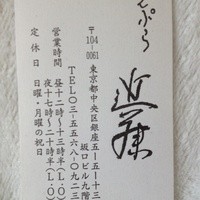 てんぷら
近藤
〒104-0061
東京都中央区銀座五-五-十三
坂口ビル九階
TEL〇三-五五六八-〇九二三
営業時間
昼十二〜十三時半(L.O.)
夜十七〜二十時半(L.O.)
定休日
日曜・月曜の祝日